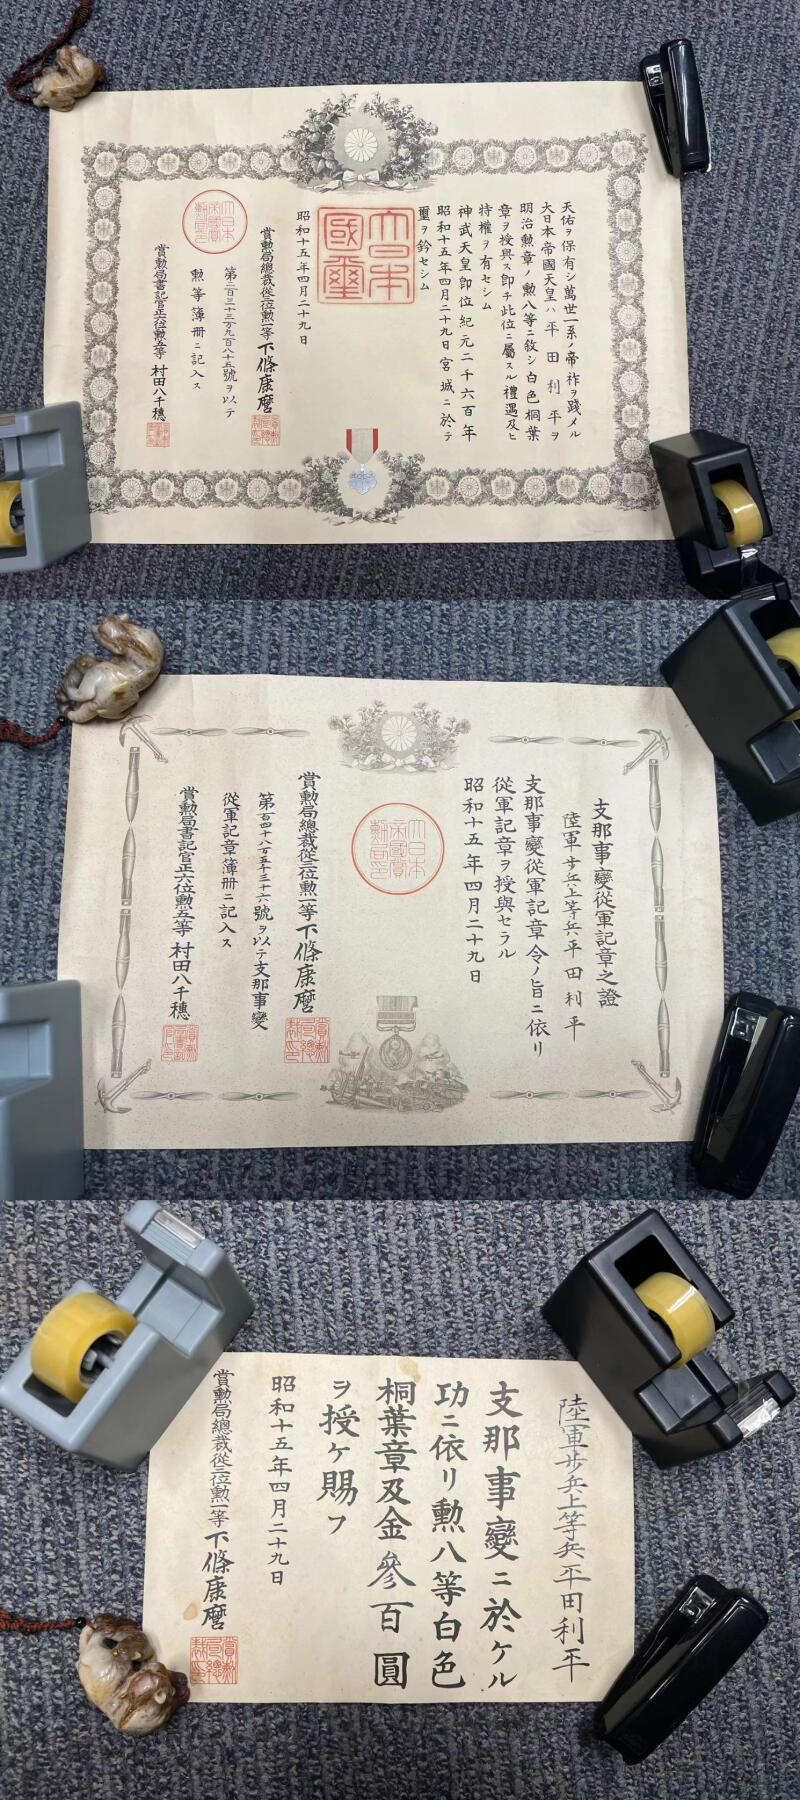 天佑ヲ保有シ萬世一系ノ帝祚ヲ踐メル
大日本帝國天皇ハ平田利平ヲ
明治勲章ノ勲八等ニ敘シ白色桐葉
章ヲ授與ス即チ此位ニ屬スル禮遇及ヒ
特權ヲ有セシム
神武天皇即位紀元二千六百年
昭和十五年四月二十九日宮城ニ於テ
璽ヲ鈐セシム
大日本國璽
昭和十五年四月二十九日
賞勲局總裁從三位勲一等下條康麿
第二百三十三万九百八十五號ヲ以テ
勲等簿册ニ記入ス
賞勲局書記官正六位勲五等村田八千穗
大日本帝國賞勲局印
支那事變從軍記章之證
陸軍歩兵上等兵平田利平
支那事變從軍記章令ノ旨ニ依リ
從軍記章ヲ授與セラル
昭和十五年四月二十九日
大日本帝國賞勲局印
賞勲局總裁從三位勲一等下條康麿
號ヲ以テ支那事變
從軍記章簿册ニ記入ス
賞勲局書記官正六位勲五等村田八千穗
陸軍歩兵上等兵平田利平
支那事變ニ於ケル
功ニ依リ勲八等白色
桐葉章及金參百圓
ヲ授ケ賜フ
昭和十五年四月二十九日
賞勲局總裁從三位勲一等下條康麿